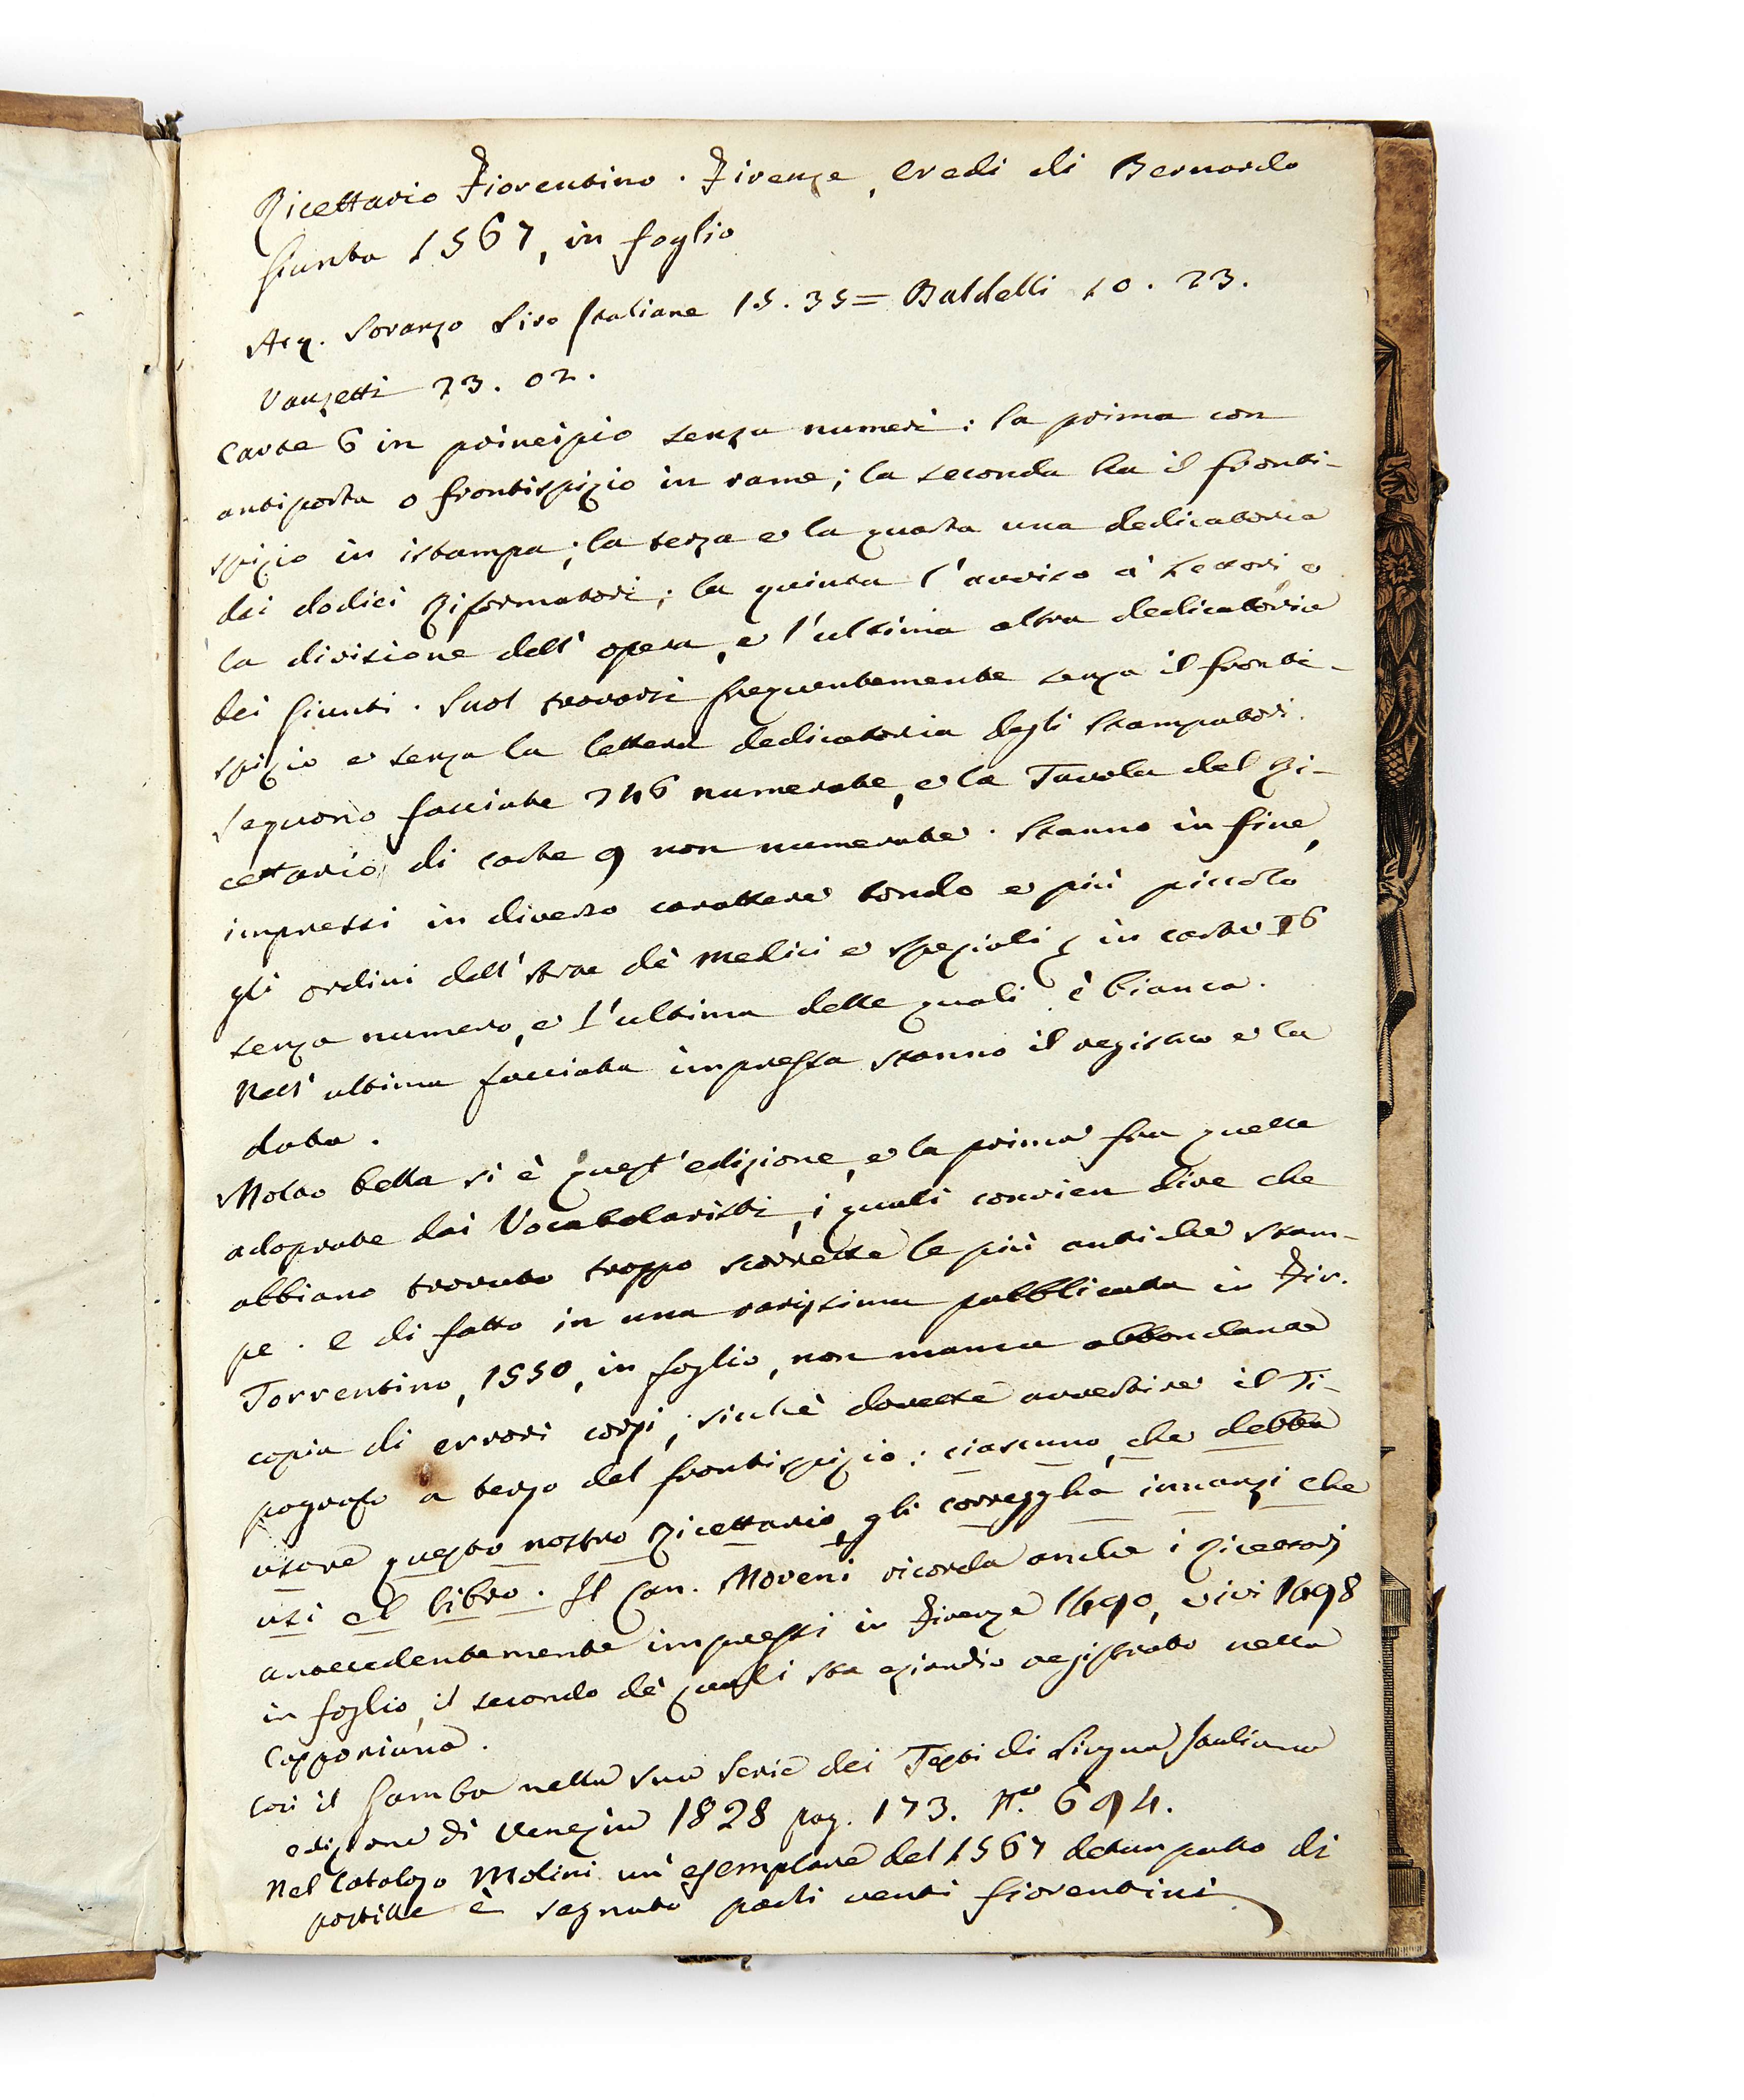 Ricettario Fiorentino. Firenze, eredi di Bernardo
Giunta 1567, in foglio
Acq. Soranzo Lire Italiane 15. 35 = Baldelli 10. 23.
Vanzetti 23. 02.
Carte 6 in principio senza numeri: la prima con
antiporta o frontispizio in rame; la seconda ha il fronti-
spizio in istampa; la terza e la quarta una dedicatoria
dei dodici Riformatori; la quinta l'avviso a' Lettori e
la divisione dell' opera, e l'ultima altra dedicatoria
dei Giunti. Suol trovarsi frequentemente senza il fronti-
spizio e senza la lettera dedicatoria degli Stampatori.
Seguono facciate 246 numerate, e la Tavola del Ri-
cettario di carte 9 non numerate. Stanno in fine,
impressi in diverso carattere tondo e più piccolo
gli ordini dell' arte de' Medici e Speziali, in carte 16
senza numero, e l'ultima delle quali è bianca.
Nell' ultima facciata impressa stanno il registro e la
data.
Molto bella si è quest' edizione, e la prima fra quelle
adoprate dai Vocabolaristi, i quali convien dire che
abbiano trovato troppo scorrette le più antiche stam-
pe. E di fatto in una rarissima pubblicata in Fir.
Torrentino, 1550, in foglio, non manca abbondante
copia di errori corsi, sicchè dovette avvertire il Ti-
pografo a tergo del frontispizio: ciascuno, che debba
usare questo nostro Ricettario, gli corregga innanzi che
usi el libro. Il Can. Moreni ricorda anche i Ricettarj
antecedentemente impressi in Firenze 1490, e ivi 1498
in foglio, il secondo de' quali sta eziandio registrato nella
Capponiana.
Così il Gamba nella sua Serie dei Testi di Lingua Italiana
edizione di Venezia 1828 pag. 173. N.º 694.
Nel Catalogo Molini un' esemplare del 1567 deturpato di
postille è segnato paoli venti fiorentini